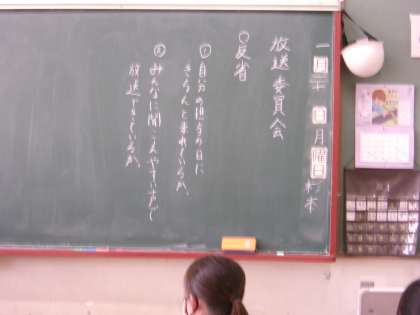 放送委員会
○反省
①自分の担当の日に
きちんと来れているか、
②みんなに聞こえやすい声で
放送できているか、
月 曜日